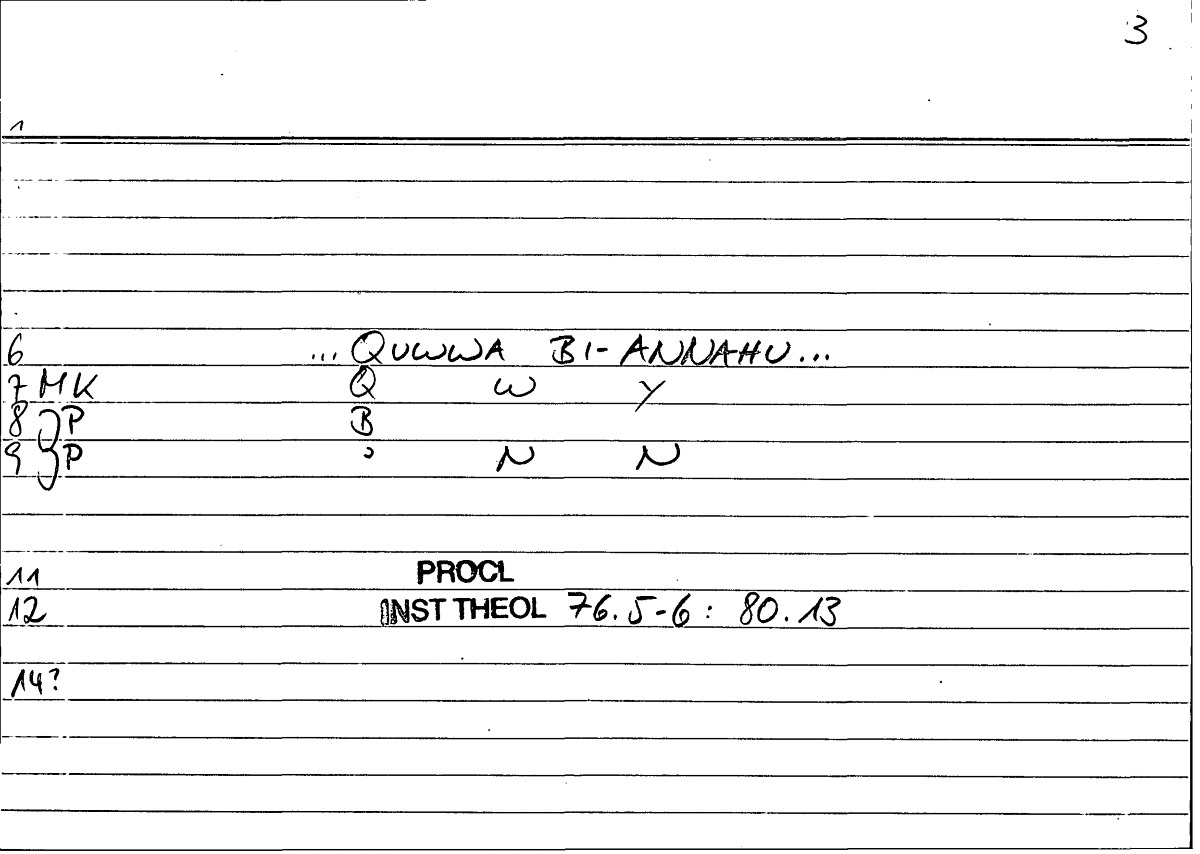 3
1
6 ... QUWWA BI-ANNAHU...
7 MK Q W Y
8 P B
9 P ʾ N N
11 PROCL
12 INST THEOL 76.5-6: 80.13
14?